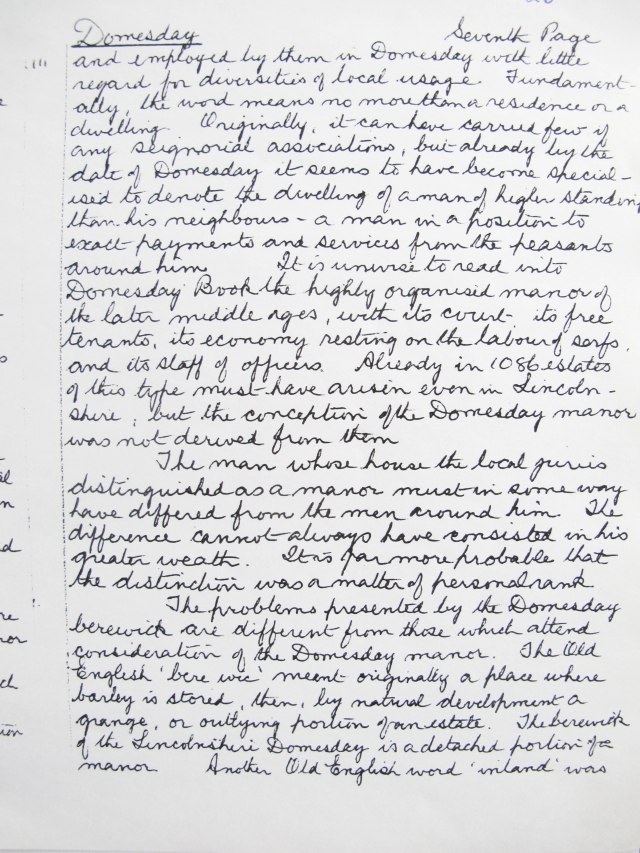 Domesday Seventh Page
and employed by them in Domesday with little
regard for diversities of local usage. Fundament-
ally, the word means no more than a residence or a
dwelling. Originally, it can have carried few if
any seignorial associations, but already by the
date of Domesday it seems to have become special-
ised to denote the dwelling of a man of higher standing
than his neighbours - a man in a position to
exact payments and services from the peasants
around him. It is unwise to read into
Domesday Book the highly organised manor of
the later middle ages, with its court, its free
tenants, its economy resting on the labour of serfs,
and its staff of officers. Already in 1086 estates
of this type must have arisen even in Lincoln-
shire, but the conception of the Domesday manor
was not derived from them
The man whose house the local juries
distinguished as a manor must in some way
have differed from the men around him. The
difference cannot always have consisted in his
greater weath. It is far more probable that
the distinction was a matter of personal rank
The problems presented by the Domesday
berewick are different from those which attend
consideration of the Domesday manor. The Old
English 'bere wic' meant originally a place where
barley is stored, then, by natural development a
grange, or outlying portion of an estate. The berewick
of the Lincolnshire Domesday is a detached portion of a
manor Another Old English word 'inland' was